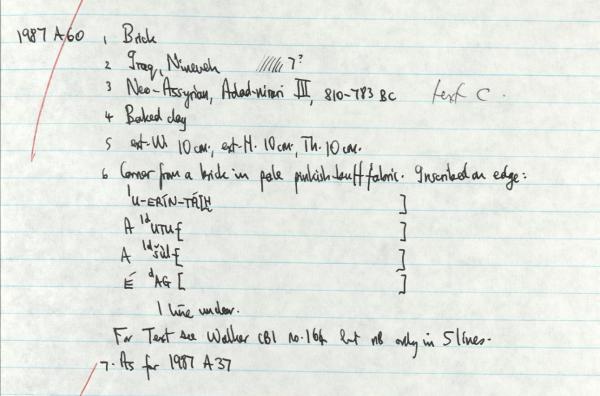 1987 A 60 1 Brick
2 Iraq, Nineveh ///// 7?
3 Neo-Assyrian, Adad-nirari III, 810-783 BC text C.
4 Baked clay
5 ext. W. 10 cm., ext. H. 10 cm., Th. 10 cm.
6 Corner from a brick in pale pinkish-buff fabric. Inscribed on edge:
¹U-ERÍN-TÁḪ ]
A ¹ᵈUTU-[ ]
A ¹ᵈšùl-[ ]
É ᵈAG [ ]
1 line unclear.
For Text see Walker CBI no. 164 but NB only in 5 lines.
7. As for 1987 A 37